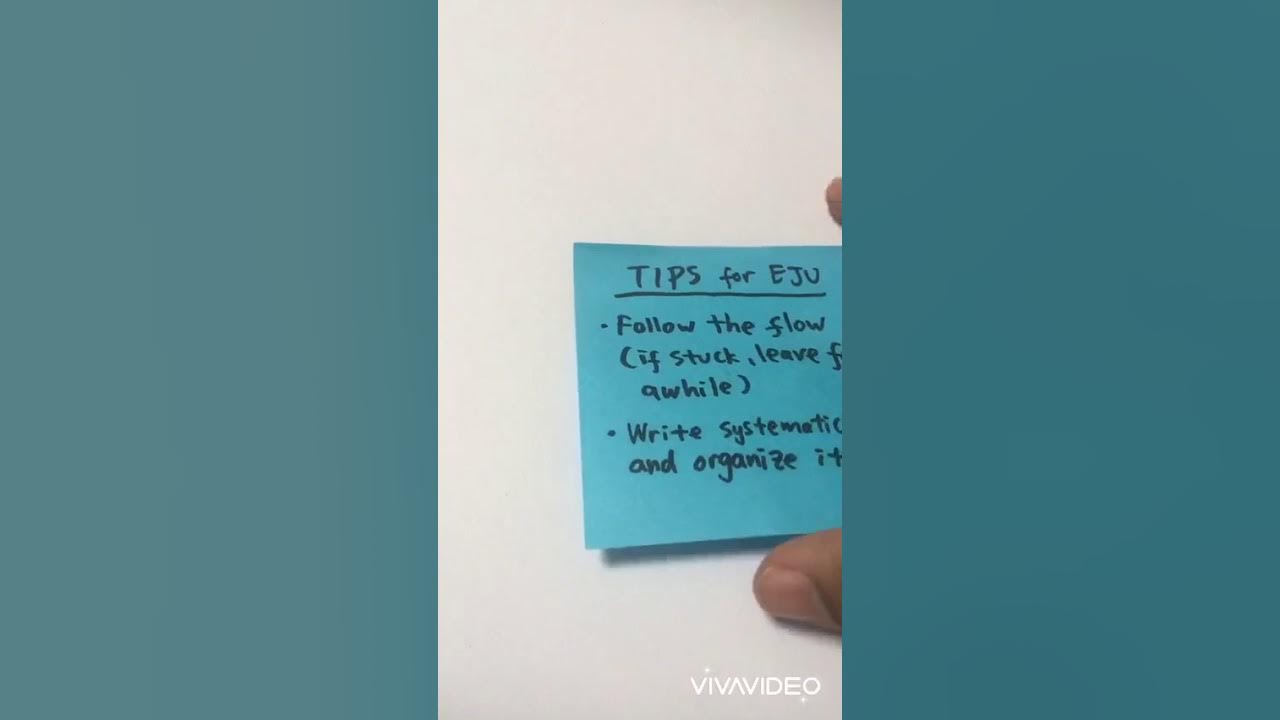 TIPS for EJU
• Follow the flow
(if stuck, leave f
awhile)
• Write systematic
and organize it
VIVAVIDEO